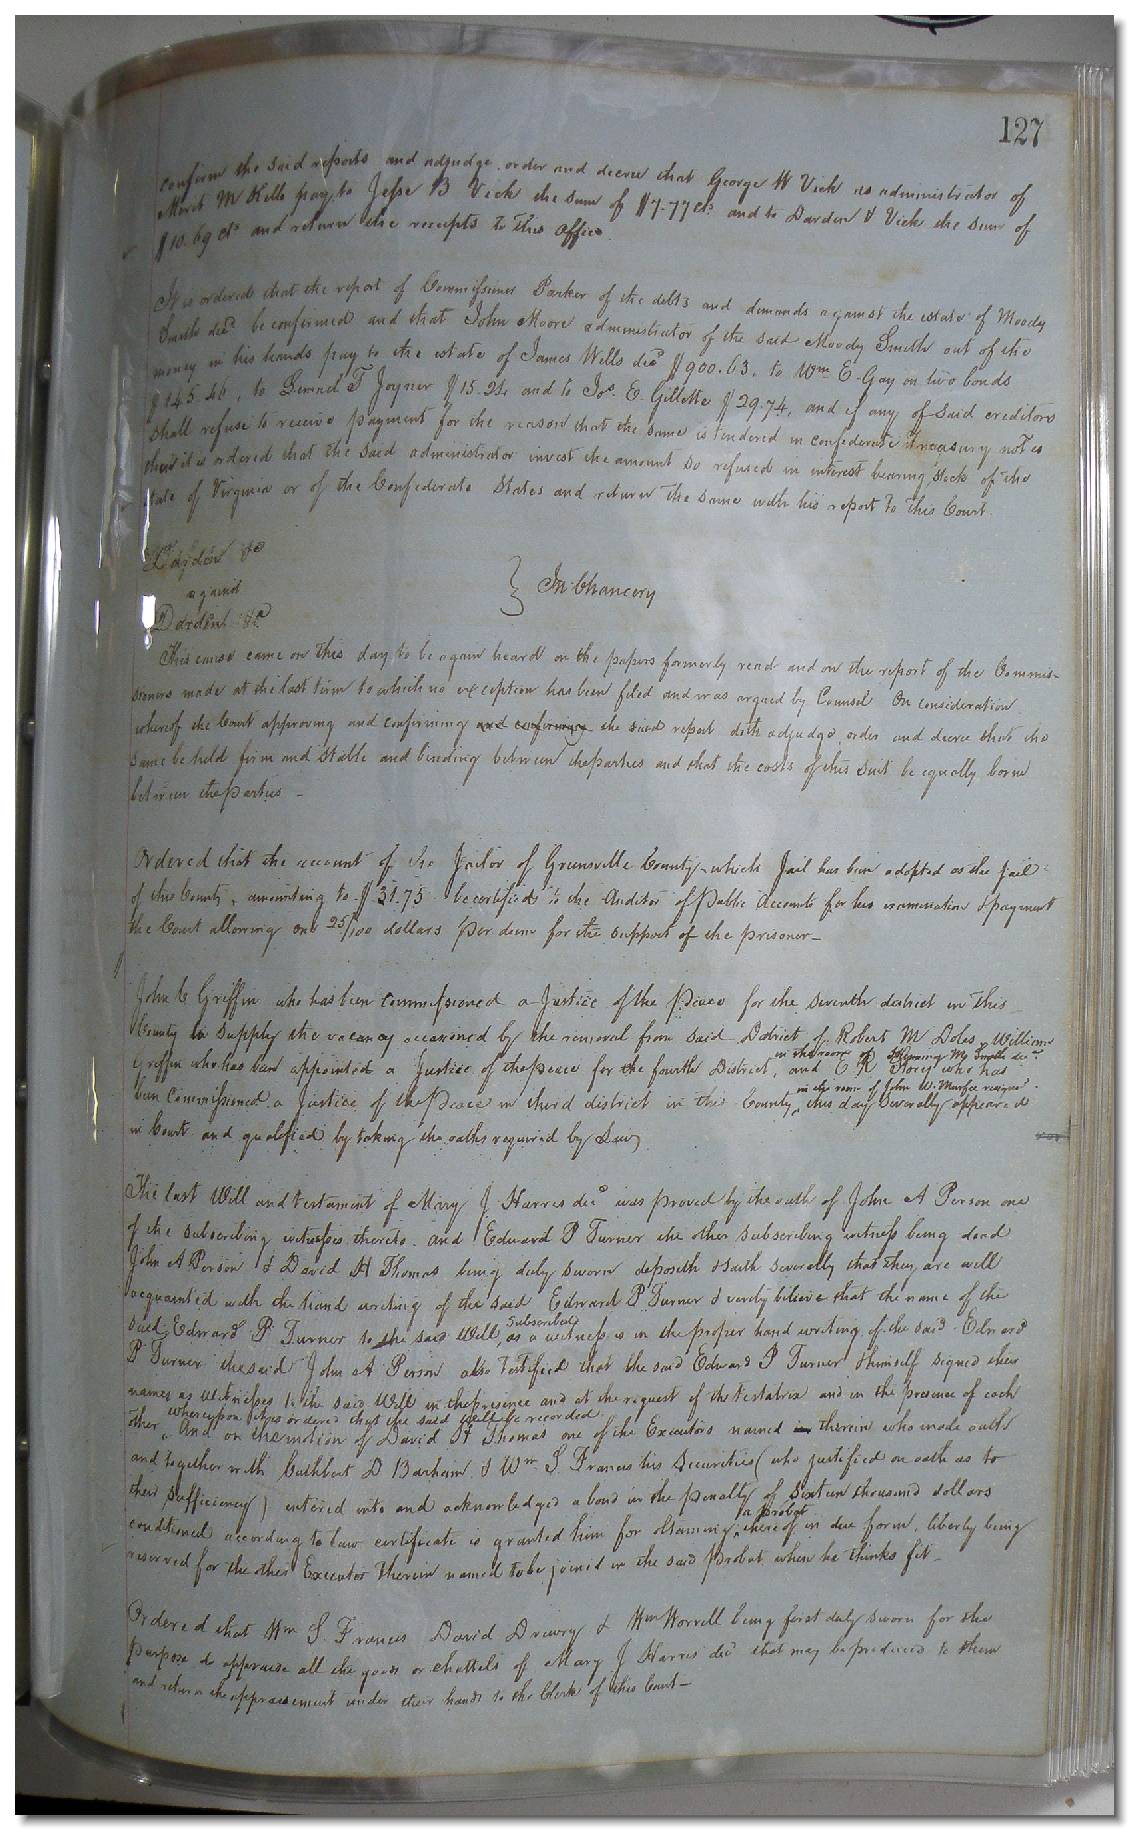 127
confirm the said reports and adjudge, order and decree that George W Vick as administrator of
M Kello pay to Jesse B Vick the sum of $7.77 cts and to Darden & Vick the sum of
$10.69 cts and return the receipts to this office.
It is ordered that the report of Commissioner Parker of the debts and demands against the estate of Moody
Smith decd be confirmed and that John Moore administrator of the said Moody Smith out of the
money in his hands pay to the estate of James Wells decd $900.63, to Wm E. Gay on two bonds
$145.46, to Lemuel T Joyner $15.24 and to Jos. E. Gillette $29.74, and if any of said creditors
shall refuse to receive payment for the reason that the same is tendered in confederate treasury notes
then it is ordered that the said administrator invest the amount so refused in interest bearing stock of the
State of Virginia or of the Confederate States and return the same with his report to this Court.
&c
against } In Chancery
Darden &c
This cause came on this day to be again heard on the papers formerly read and on the report of the Commis-
sioners made at the last term to which no exception has been filed and was argued by Counsel On consideration
whereof the Court approving and confirming and confirming the said report doth adjudge, order and decree that the
same be held firm and stable and binding between the parties and that the costs of this suit be equally borne
between the parties -
Ordered that the account of the Jailor of Greensville County - which Jail has been adopted as the Jail
of this County, amounting to $31.75 be certified to the Auditor of Public Accounts for his examination & payment
the Court allowing one 25/100 dollars per diem for the support of the prisoner -
John C Griffin who has been commissioned a Justice of the Peace for the seventh district in this
County to supply the vacancy occasioned by the removal from said District of Robert M Doles, William
Griffin who has been appointed a Justice of the peace for the fourth District, in the room of Smith decd and E R Story who has
been Commissioned a Justice of the Peace in third district in the County, in the room of John W. Murfee resigned this day severally appeared
in Court and qualified by taking the oaths required by Law
The last Will and testament of Mary J Harris decd was proved by the oath of John A Person one
of the subscribing witnesses thereto. and Edward P Turner the other subscribing witness being dead
John A Person & David H Thomas being duly sworn deposeth & saith severally that they are well
acquainted with the hand writing of the said Edward P Turner & verily believe that the name of the
said Edward P Turner to the said Will, Subscribed as a witness is in the proper hand writing of the said Edward
P Turner the said John A Person also testified that the said Edward P Turner & himself signed their
names as witnesses to the said Will in the presence and at the request of the testatrix and in the presence of each
other, whereupon it is ordered that the said Will be recorded And on the motion of David H Thomas one of the Executors named in therein who made oath
and together with Cuthbert D Barham & Wm S Francis his securities (who justified on oath as to
their sufficiency) entered into and acknowledged a bond in the penalty of sixteen thousand dollars
conditioned according to law certificate is granted him for obtaining a probat thereof in due form, liberty being
reserved for the other Executor therein named to be joined in the said probat when he thinks fit -
Ordered that Wm S. Francis David Drewry & Wm Worrell being first duly sworn for the
purpose do appraise all the goods or chattels of Mary J Harris decd that may be produced to them
and return the appraisement under their hands to the Clerk of this Court -